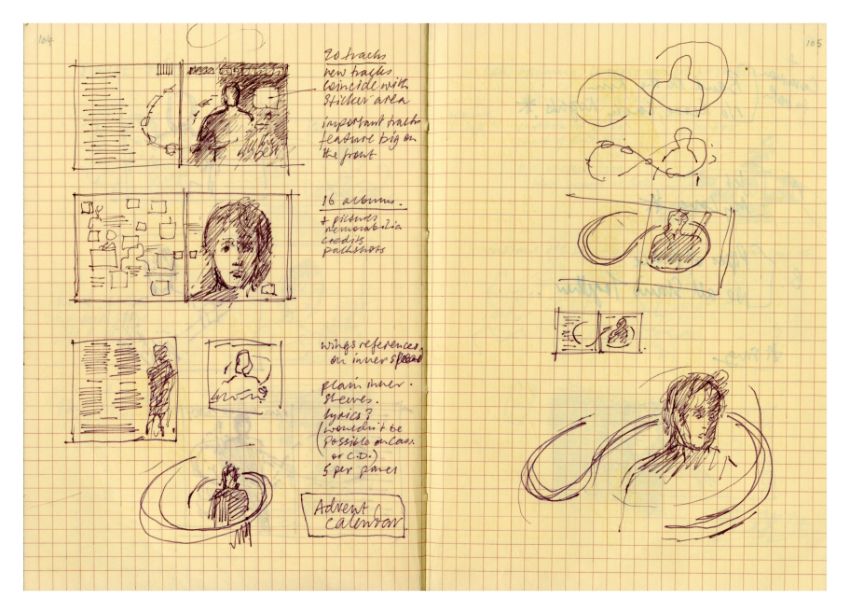 104
20 tracks
new tracks
coincide with
sticker area
important tracks
feature big on
the front
16 albums.
+ pictures
memorabilia
credits
wings references
on inner spread
plain inner.
sleeves.
lyrics?
(wouldn't be
possible on Cass.
or C.D.)
5 per panel
Advent
calendar
105